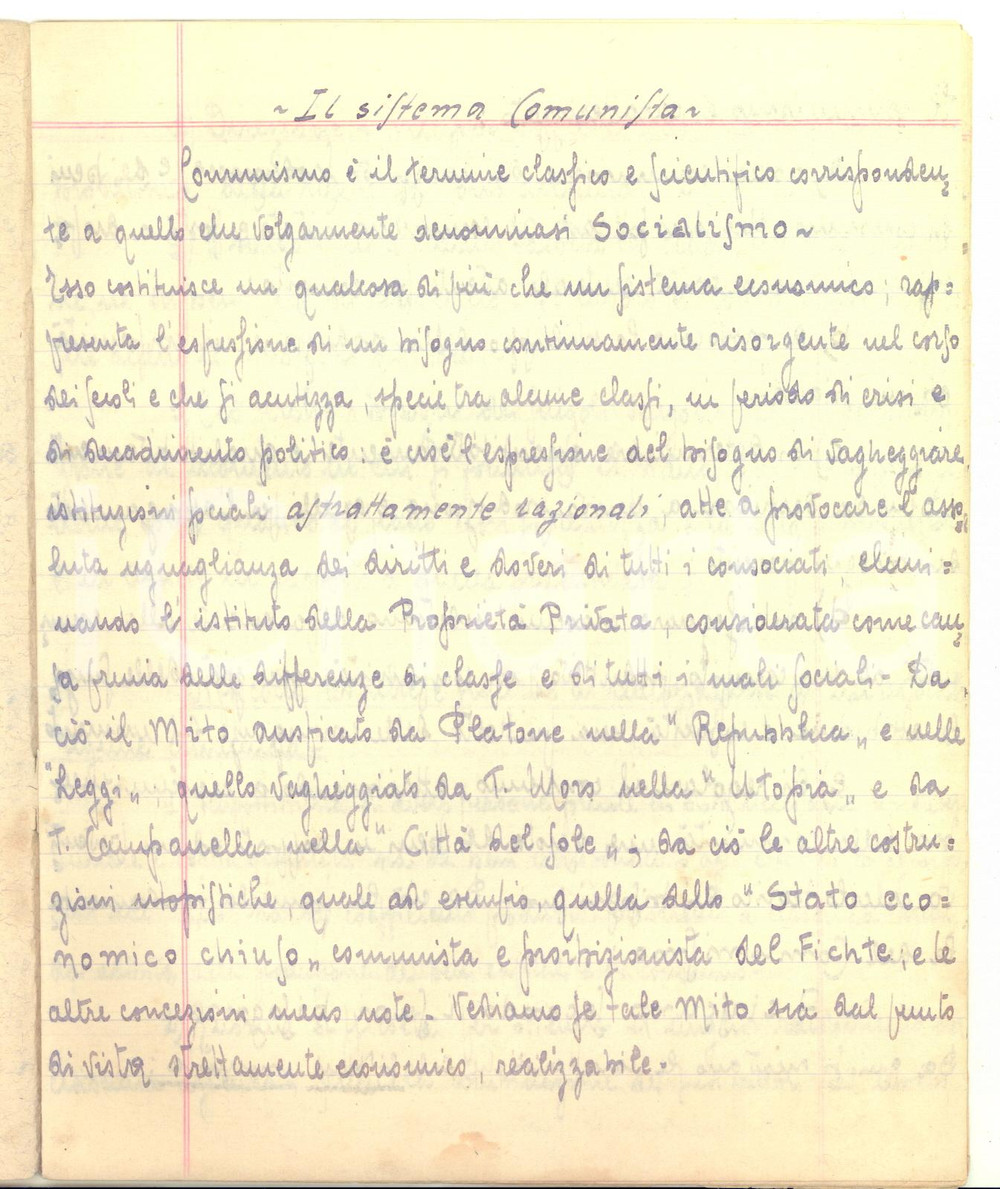 ~ Il sistema Comunista ~
Comunismo è il termine classico e scientifico corrisponden=
te a quello che volgarmente denominasi Socialismo ~
Esso costituisce un qualcosa di più che un sistema economico; rap=
presenta l'espressione di un bisogno continuamente risorgente nel corso
dei secoli e che si acutizza, specie tra alcune classi, in periodo di crisi e
di decadimento politico: è cioè l'espressione del bisogno di vagheggiare
istituzioni sociali astrattamente razionali, atte a provocare l'asso=
luta uguaglianza dei diritti e doveri di tutti i consociati, elimi=
nando l'istituto della Proprietà Privata, considerata come cau=
sa prima delle differenze di classe e di tutti i mali sociali - Da
ciò il Mito auspicato da Platone nella "Repubblica„ e nelle
"Leggi„, quello vagheggiato da T. Moro nella "Utopia„ e da
T. Campanella nella "Città del sole„; da ciò le altre costru=
zioni utopistiche, quale ad esempio, quella dello "Stato eco=
nomico chiuso„ comunista e proibizionista del Fichte, e le
altre concezioni meno note - Vediamo se tale Mito sia dal punto
di vista strettamente economico, realizzabile -